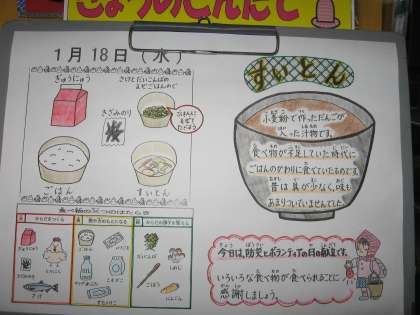 きょうのこんだて
1月18日(水)
ぎゅうにゅう
さけとだいこんばの
まぜごはんのぐ
きざみのり
ごはんに
まぜて
たべよう
ごはん
すいとん
すいとん
小麦粉で作っただんごが
入った汁物です。
食べ物が不足していた時代に
ごはんのかわりに食べていたものです。
昔は具が少なく、味も
あまりついていませんでした。
今日は、防災とボランティアの日の献立です。
いろいろな食べ物が食べられることに
感謝しましょう。
ぎゅうにゅう
とりにく
さけ
ごはん
だいこん
にんじん